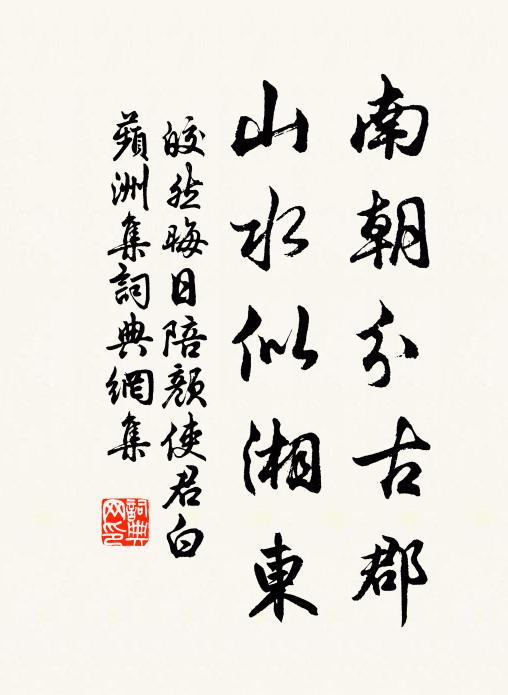 南朝分古郡
山水似湘東
皎然晦日陪顏使君白
蘋洲集詞典網集
詞典
网印